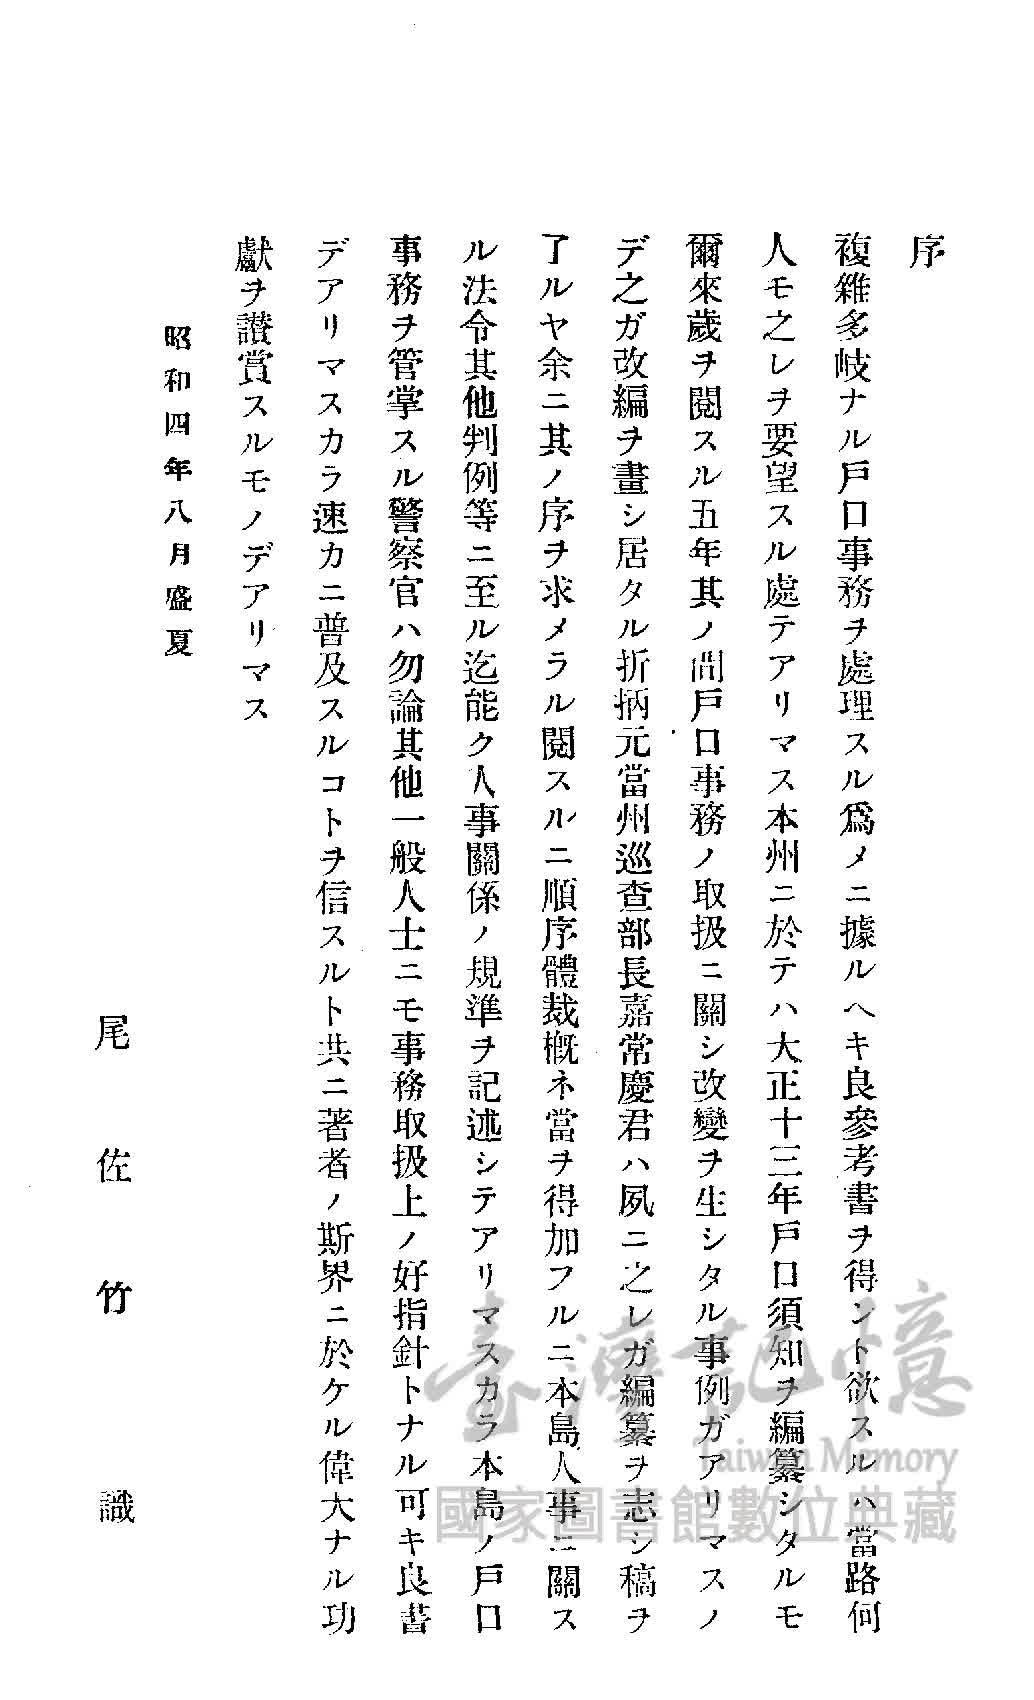 序
複雜多岐ナル戶口事務ヲ處理スル爲メニ據ルヘキ良參考書ヲ得ント欲スルハ當路何
人モ之レヲ要望スル處テアリマス本州ニ於テハ大正十三年戶口須知ヲ編纂シタルモ
爾來歲ヲ閱スル五年其ノ間戶口事務ノ取扱ニ關シ改變ヲ生シタル事例ガアリマスノ
デ之ガ改編ヲ畫シ居タル折柄元當州巡查部長嘉常慶君ハ夙ニ之レガ編纂ヲ志シ稿ヲ
了ルヤ余ニ其ノ序ヲ求メラル閱スルニ順序體裁槪ネ當ヲ得加フルニ本島人事ニ關ス
ル法令其他判例等ニ至ル迄能ク人事關係ノ規準ヲ記述シテアリマスカラ本島ノ戶口
事務ヲ管掌スル警察官ハ勿論其他一般人士ニモ事務取扱上ノ好指針トナル可キ良書
デアリマスカラ速カニ普及スルコトヲ信スルト共ニ著者ノ斯界ニ於ケル偉大ナル功
獻ヲ讃賞スルモノデアリマス
昭和四年八月盛夏
尾佐竹識
臺灣記憶
Taiwan Memory
國家圖書館數位典藏